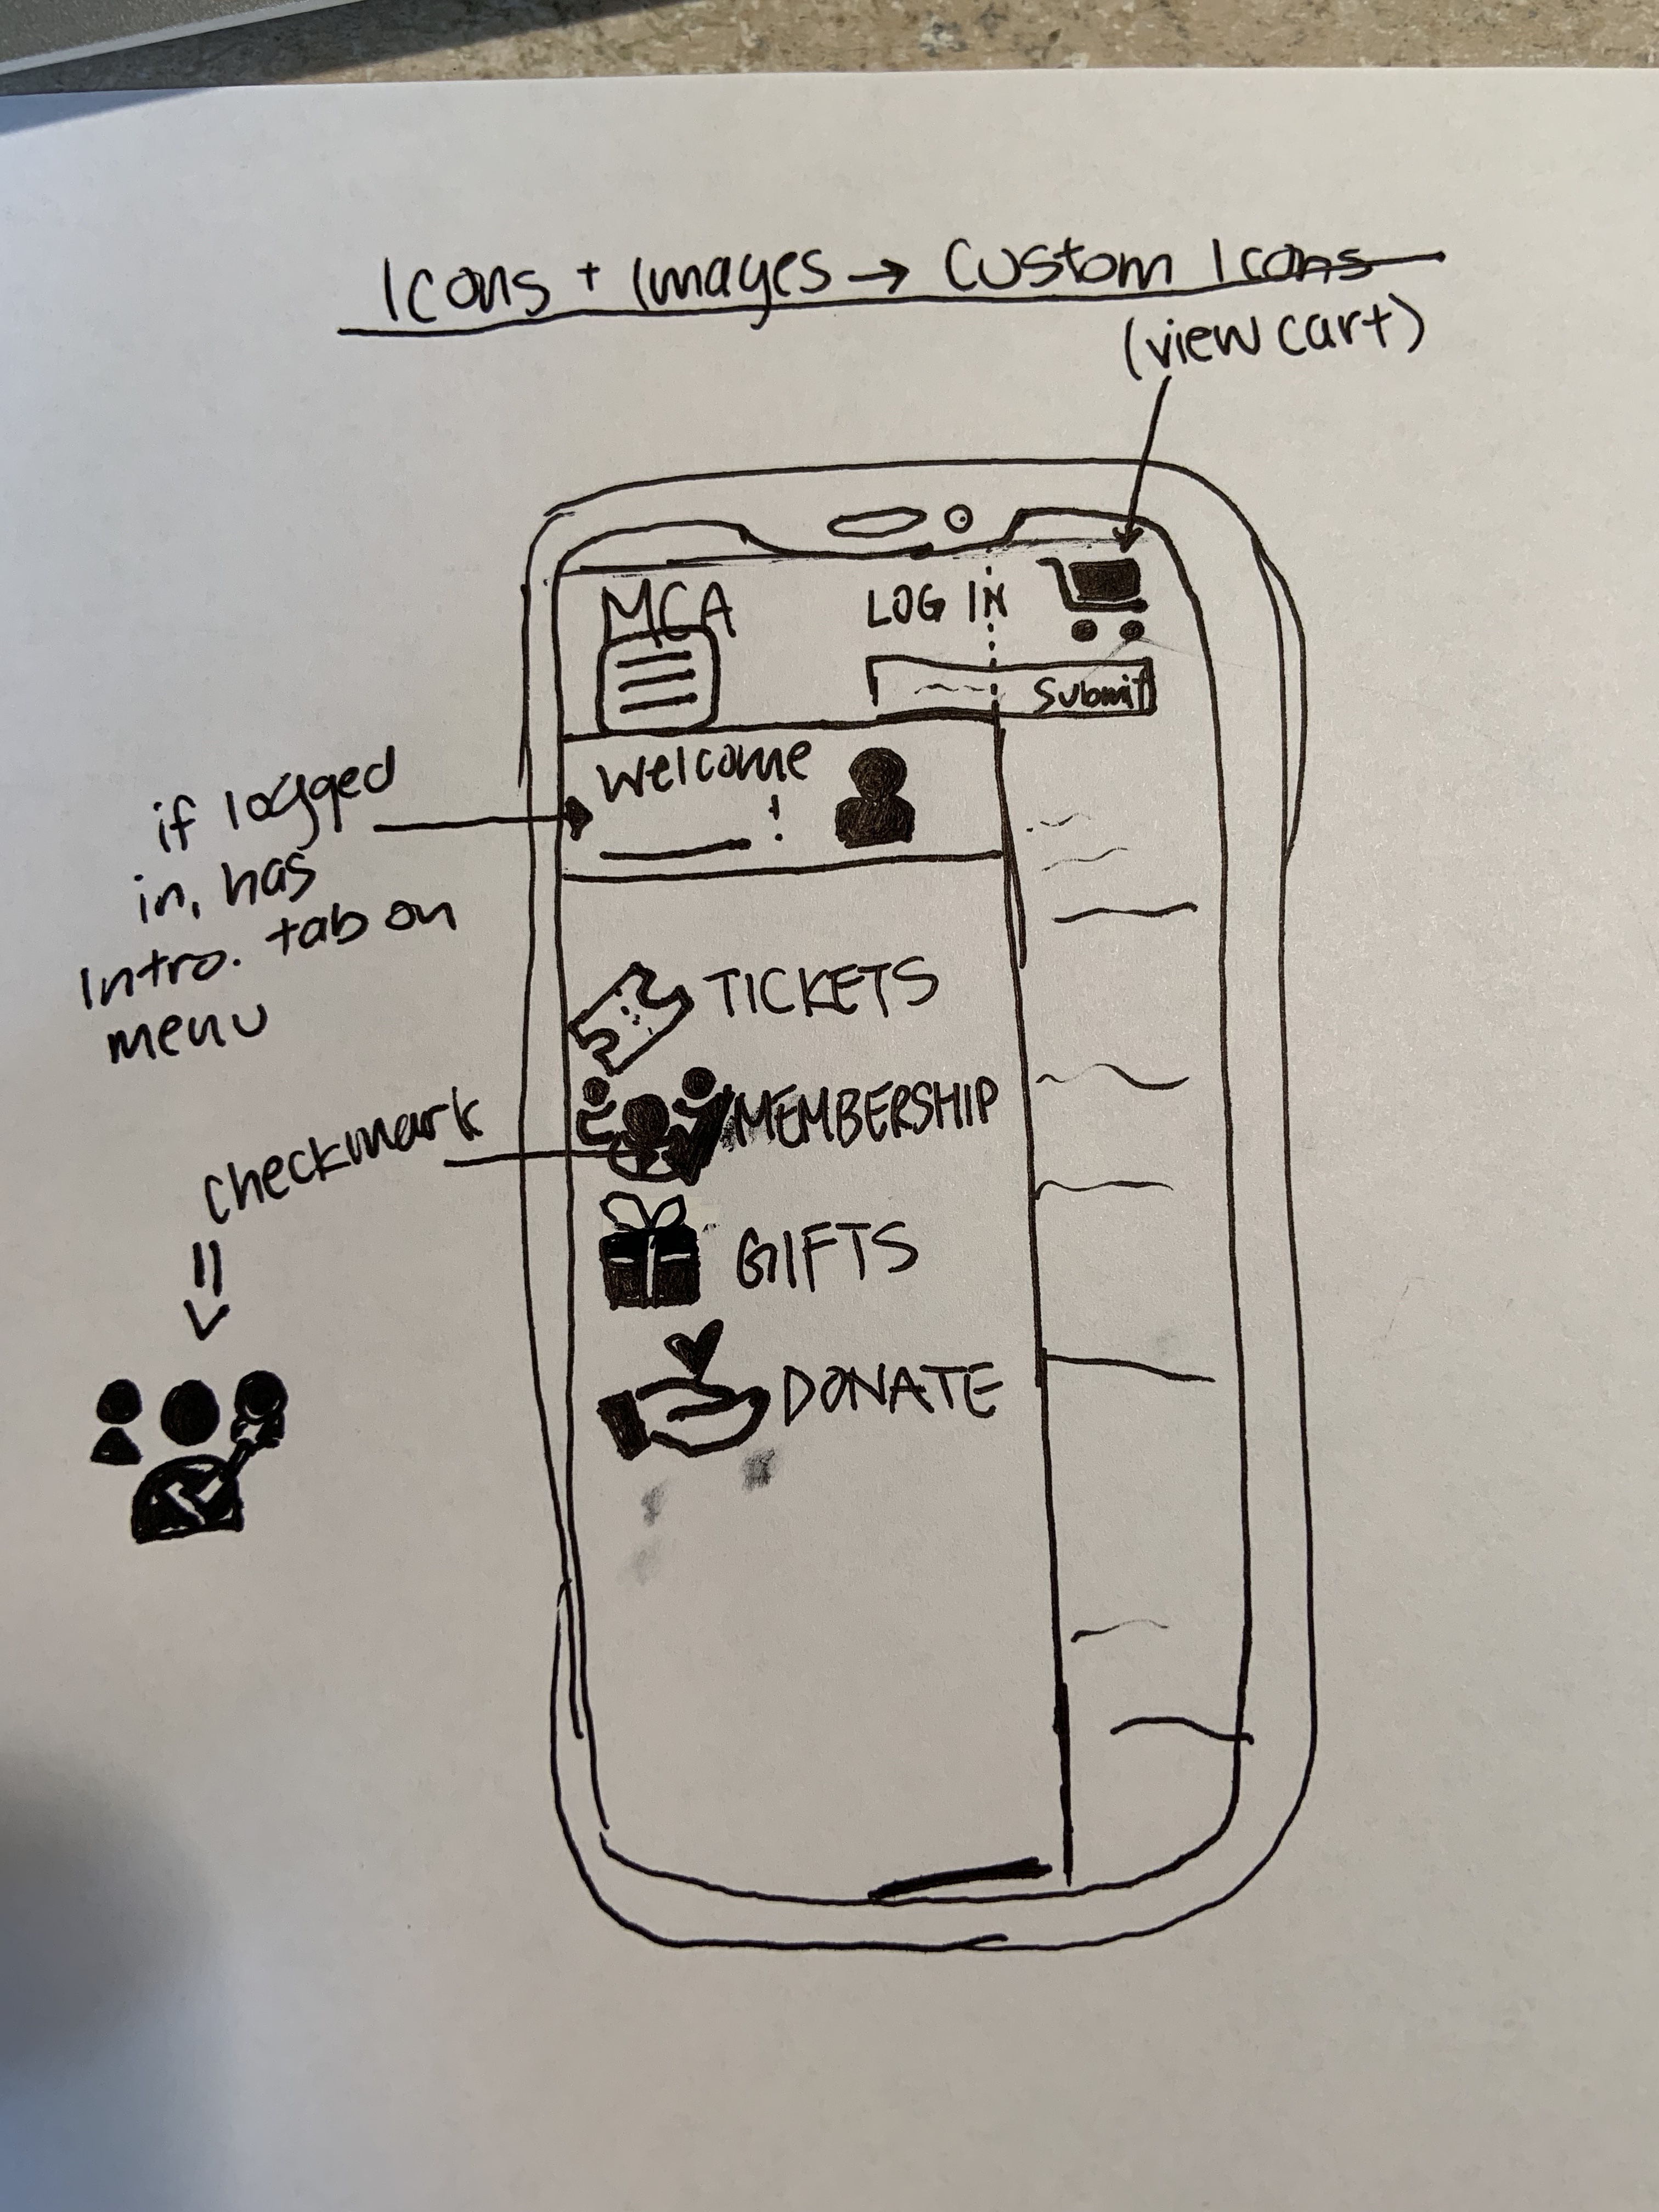 Icons + Images → Custom Icons
(view cart)
MCA
LOG IN
Submit
Welcome
!
if logged
in, has
Intro. tab on
menu
TICKETS
MEMBERSHIP
checkmark
GIFTS
DONATE